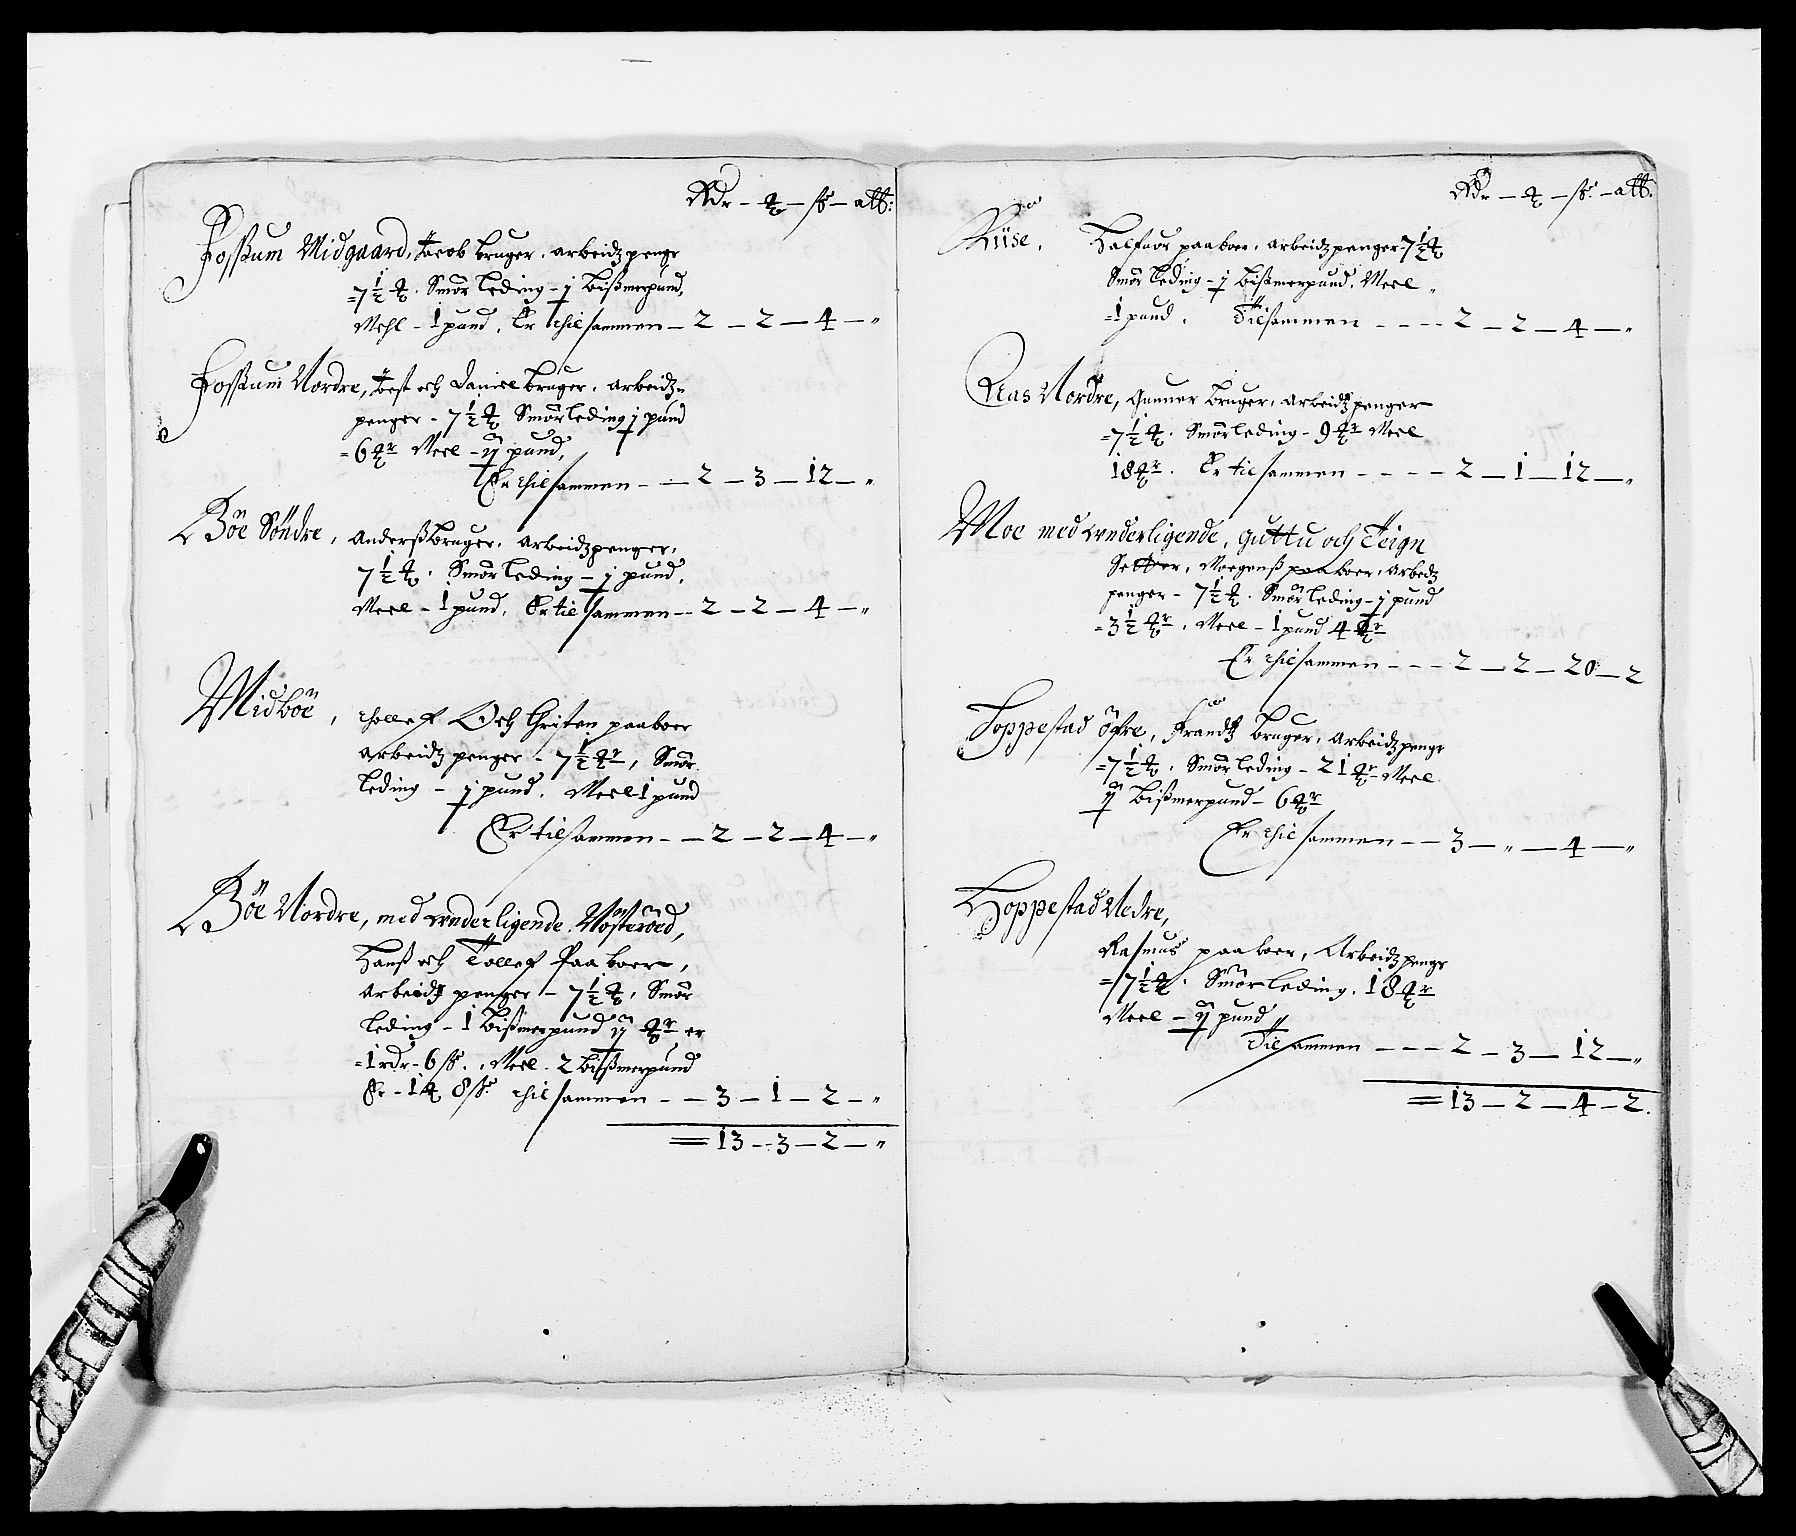 Rdr - ꝑ - ß - alb:
Fossum Midgaard, Jacob bruger, arbeidz pengr
= 7½ ꝑ. Smör Leding - j Bißmerpund,
Mehl - 1 pund. Er thilsammen - 2 - 2 - 4 - "
Fossum Nordre, och Daniel bruger, arbeidz=
penger - 7½ ꝑ Smörleding j pund
= 6 ꝑr Meel - ij pund,
Er thilsammen - - 2 - 3 - 12 - "
Böe Söndre, Anderß bruger, arbeidzpenger,
7½ ꝑ. Smör Leding - j pund,
Meel - 1 pund, Er tilsammen - - 2 - 2 - 4 - "
Midböe, thollef Och Christen paaboer
arbeidz penger - 7½ ꝑr, Smör
leding - j pund. Meel 1 pund
Er tilsammen - - 2 - 2 - 4 - "
Böe Nordre, med underligende Nösteröed,
Hanß och Tollef Paaboer,
arbeidz penger - 7½ ꝑ, Smör
leding - 1 Bißmerpund ij ꝑr er
= 1 rdr - 6 ß. Meel - 2 bißmerpund
Er - 1 ꝑ 8 ß. thilsammen - - 3 - 1 - 2 - "
= 13 - 3 - 2 - "
Rdr - ꝑ - ß - alb:
Riise, Halfuor paaboer, arbeidzpenger 7½ ꝑ
Smör Leding - j Bißmerpund, Meel
= 1 pund. Tilsammen - - - - 2 - 2 - 4 - "
Aas Nordre, Gunner bruger, arbeidzpenger
= 7½ ꝑ. Smörleding - 9 ꝑr Meel
18 ꝑr. Er tilsammen - - - - 2 - 1 - 12 - "
Moe med underligende, guttu och Teign
Setter, Moegenß paaboer, arbedz
penger - 7½ ꝑ. Smör leding - j pund
= 3½ ꝑr. Meel - 1 pund 4 ꝑr
Er thilsammen - - - 2 - 2 - 20 - 2
Hoppestad öfre, Frandz bruger, arbeidzpengr
= 7½ ꝑ. Smör leding - 21 ꝑr Meel
ij Bißmerpund - 6 ꝑr
Er thilsammen - - 3 - " - 4 - "
Hoppestad Nedre,
Rasmus paaboer, Arbeidzpengr
= 7½ ꝑ. Smör leding. 18 ꝑr
Meel - ij pund
Tilsammen - - - 2 - 3 - 12 - "
= 13 - 2 - 4 - 2.